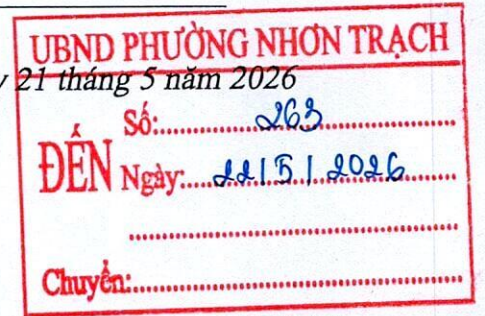 UBND PHƯỜNG NHƠN TRẠCH
y 21 tháng 5 năm 2026
Số:.......263.......
ĐẾN Ngày:....22/5/2026......
Chuyển:.......